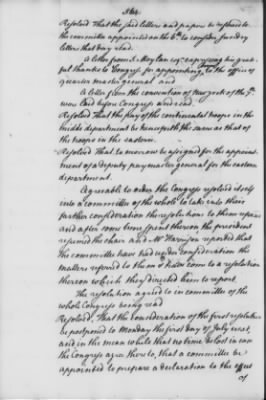 364.
Resolved That the said letters and papers be referred to
the committee appointed on the 6th to consider sundry
letters that day read.
A letter from S. Moylan esqr expressing his grate
ful thanks to Congress for appointing to the office of
quarter master general and
A letter from the convention of New york of the 7th
were laid before Congress and read.
Resolved That the pay of the continental troops in the
middle department be henceforth the same as that of
the troops in the eastern.
Resolved That to morrow be assigned for the appoint
ment of a deputy paymaster general for the eastern
department.
Agreeable to order the Congress resolved itself
into a committee of the whole to take into their
farther consideration the resolutions to them referred
and after some time spent thereon the president
resumed the chair and Mr Harrison reported that
the committee have had under consideration the
matters referred to them & have come to a resolution
thereon which they directed him to report
The resolution agreed to in committee of the
whole Congress being read
Resolved, That the consideration of the first resolution
be postponed to Monday the first day of July next,
and in the mean while that no time be lost in case
the Congress agree thereto, that a committee be
appointed to prepare a declaration to the effect
of